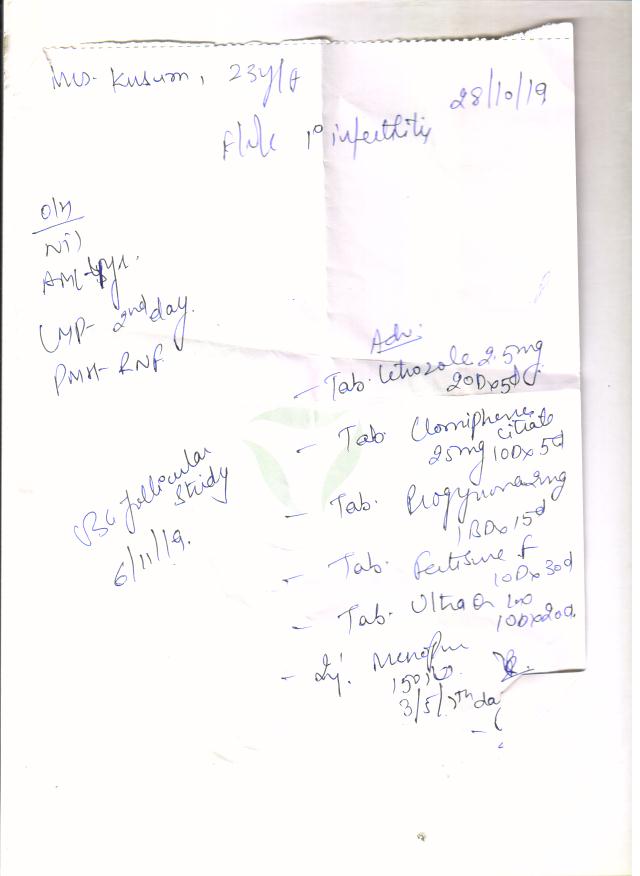 Mrs. Kusum, 23y/f
28/10/19
F/U/c 1° infertility
O/H
AML-4yr.
LMP- 2nd day.
PMH- RNF
Adv:
- Tab. Letrozole 2.5mg
2OD x 5d
- Tab Clomiphene
citrate
25mg 1OD x 5d
- Tab. Progynova 2mg
1BD x 15d
- Tab. Fertisure f
1OD x 30d
- Tab. Ultra Q 100
1OD x 20d.
- Inj. Menopur
150 IU
3/5/7th da
follicular
study
6/11/19.